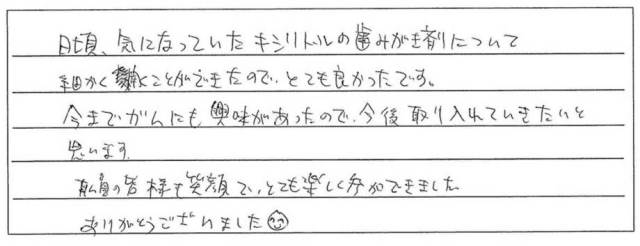 日頃、気になっていたキシリトルの歯みがき剤について
細かく聴くことができたので、とても良かったです。
今までがんにも興味があったので、今後取り入れていきたいと
思います。
の皆様も笑顔で、とても楽しく参加できました
ありがとうございました